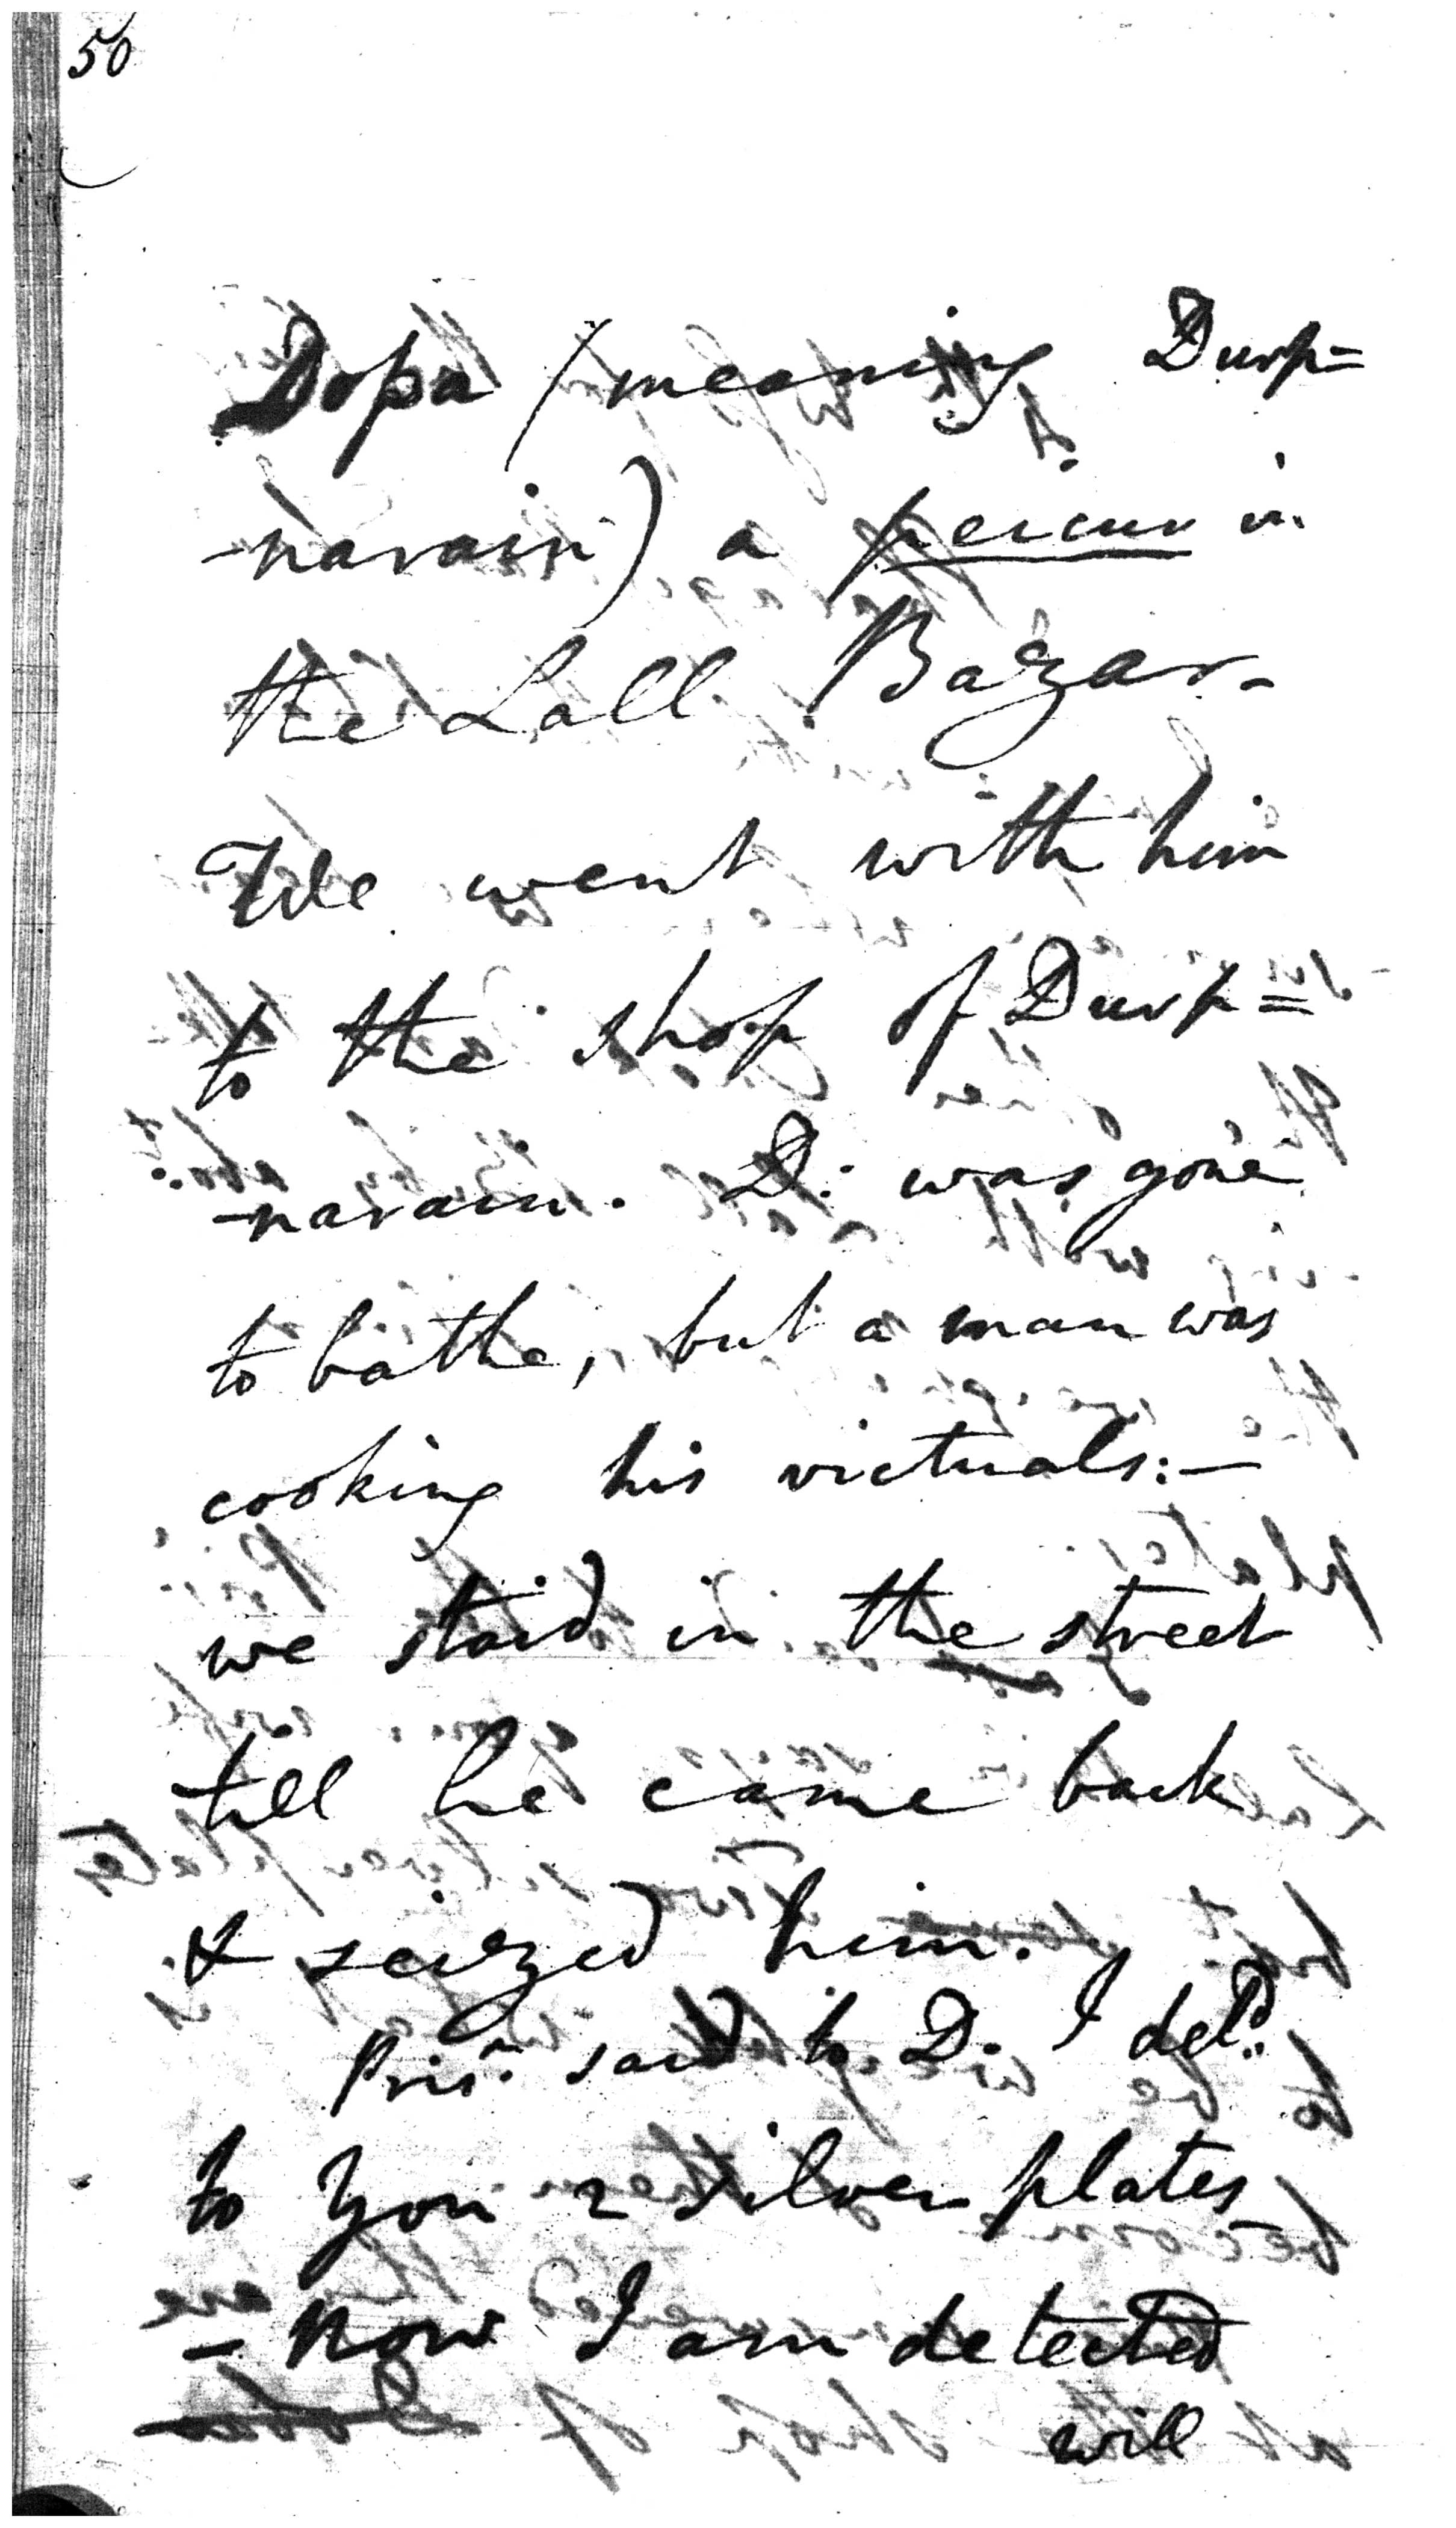 50
Dopa (meaning Durp=
-narain) a percur in
the Loll Bazar-
We went with him
to the shop of Durp=
-narain. D: was gone
to bathe, but a man was
cooking his victuals:—
we staid in the street
till he came back
& seized him.
Prisr. said to D. I deld.
to you 2 silver plates
- Now I am detected
will